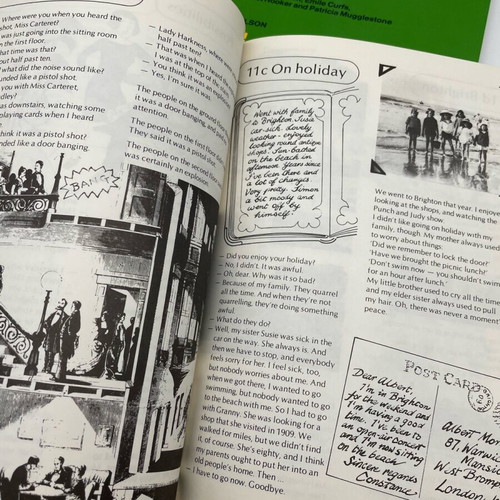 Emile Curtis,
Hooker and Patricia Mugglestone
LSON
Where were you when you heard the
shot, Miss Carteret?
was just going into the sitting room
n the first floor.
hat time was that?
out half past ten.
what did the noise sound like?
unded like a pistol shot.
you with Miss Carteret,
dley?
as downstairs, watching some
playing cards when I heard
think it was a pistol shot?
nded like a door banging.
BANG!
– Lady Harkness, where
half past ten?
– That was when I heard the
I was at the top of the
– You think it was an
– Yes, I'm sure it was.
The people on the ground
it was a door banging, and
attention.
The people on the first floor
They said it was a pistol
The people on the second
was certainly an explosion.
11c On holiday
Went with family
to Brighton. Susie
car-sick. Lovely
weather – enjoyed
looking round antique
shops. Sun-bathed
on the beach in
afternoon. Years since
I've been there and
a lot of changes.
Very pretty. Simon
a bit moody and
went off by
himself.
– Did you enjoy your holiday?
– No, I didn't. It was awful.
– Oh, dear. Why was it so bad?
– Because of my family. They quarrel
all the time. And when they're not
quarrelling, they're doing something
awful.
– What do they do?
– Well, my sister Susie was sick in the
car on the way. She always is. And
then we have to stop, and everybody
feels sorry for her. I feel sick, too,
but nobody worries about me. And
when we got there, I wanted to go
swimming, but nobody wanted to go
to the beach with me. So I had to go
with Granny. She was looking for a
shop that she visited in 1909. We
walked for miles, but we didn't find
it, of course. She's eighty, and I think
my parents ought to put her into an
old people's home. Then —
– I have to now. Goodbye.
We went to Brighton that year. I enjoyed
looking at the shops, and watching the
Punch and Judy show.
I didn't like going on holiday with my
family, though. My mother always used
to worry about things:
'Did we remember to lock the door?'
'Have we brought the picnic lunch?'
'Don't swim now — you shouldn't swim
for an hour after lunch.'
My little brother used to cry all the time
and my elder sister always used to pull
my hair. Oh, there was never a moment's
peace.
POST CARD
Dear Albert,
I'm in Brighton
for the weekend and
I'm having a good
time. I've been to
an open-air concert
and I'm now sitting
on the beach
Sincere regards
Constance
Albert Mo
87, Warwick
Mansi
West Bromp
London